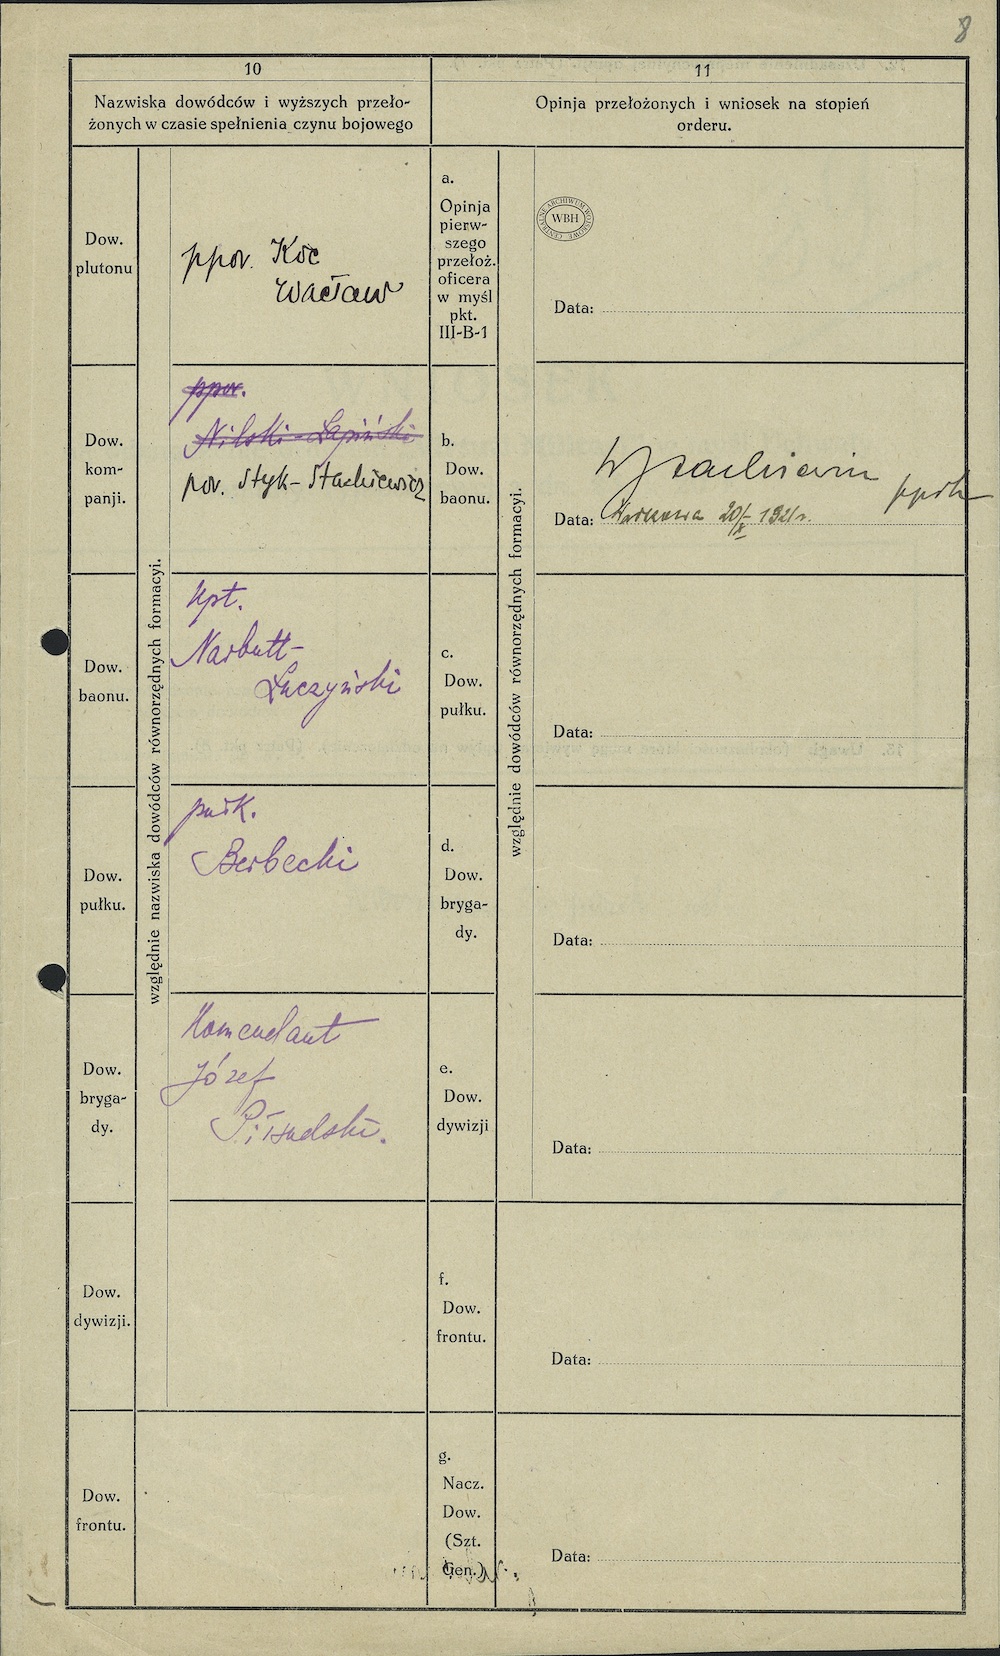 8
10
Nazwiska dowódców i wyższych przeło-
żonych w czasie spełnienia czynu bojowego
11
Opinja przełożonych i wniosek na stopień
orderu.
względnie nazwiska dowódców równorzędnych formacyi.
względnie dowódców równorzędnych formacyi.
Dow.
plutonu
ppor. Koc
Wacław
a.
Opinja
pierw-
szego
przełoż.
oficera
w myśl
pkt.
III-B-1
CENTRALNE ARCHIWUM WOJSKOWE
WBH
Data:
Dow.
kom-
panji.
ppor.
Nilski-Łapiński
por. Styk-Stachiewicz
b.
Dow.
baonu.
WStachiewicz ppłk
Data: Warszawa 20/X 1921 r.
Dow.
baonu.
kpt.
Narbutt-
Łuczyński
c.
Dow.
pułku.
Data:
Dow.
pułku.
pułk.
Berbecki
d.
Dow.
bryga-
dy.
Data:
Dow.
bryga-
dy.
Komendant
Józef
Piłsudski.
e.
Dow.
dywizji
Data:
Dow.
dywizji.
f.
Dow.
frontu.
Data:
Dow.
frontu.
g.
Nacz.
Dow.
(Szt.
Gen.)
Data: